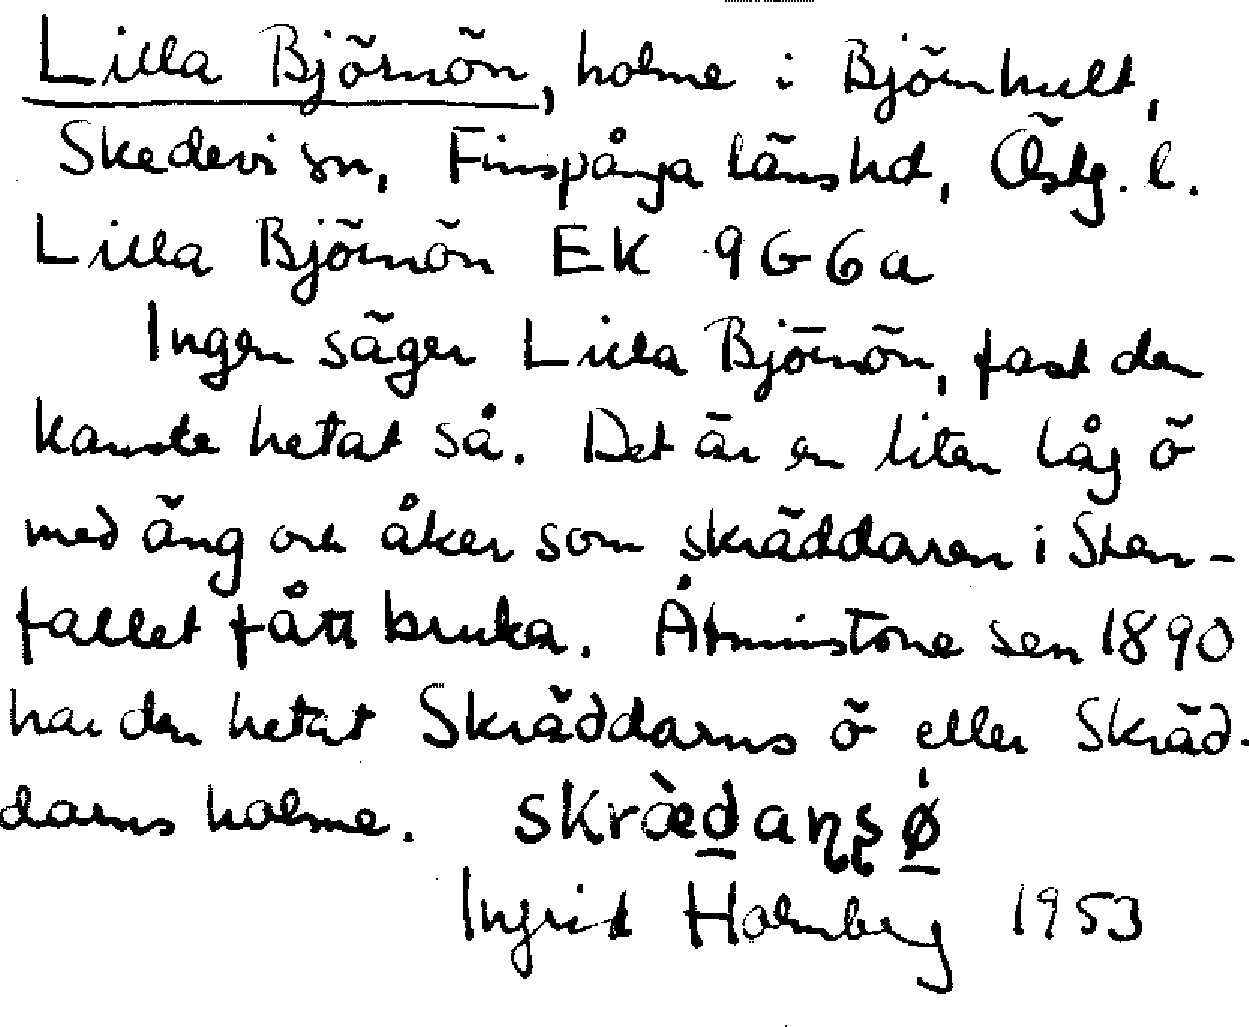 Lilla Björnön, holme i Björnhult,
Skedevi sn, Finspånga länshd, Östg. l.
Lilla Björnön EK 9G6a
Ingen säger Lilla Björnön, fast den
kanske hetat så. Det är en liten låg ö
med äng och åker som skräddaren i Sten-
fallet fått bruka. Åtminstone sen 1890
har den hetat Skräddarns ö eller Skräd-
darns holme. skræ̀d̲aɳʂǿ̲
Ingrid Holmberg 1953